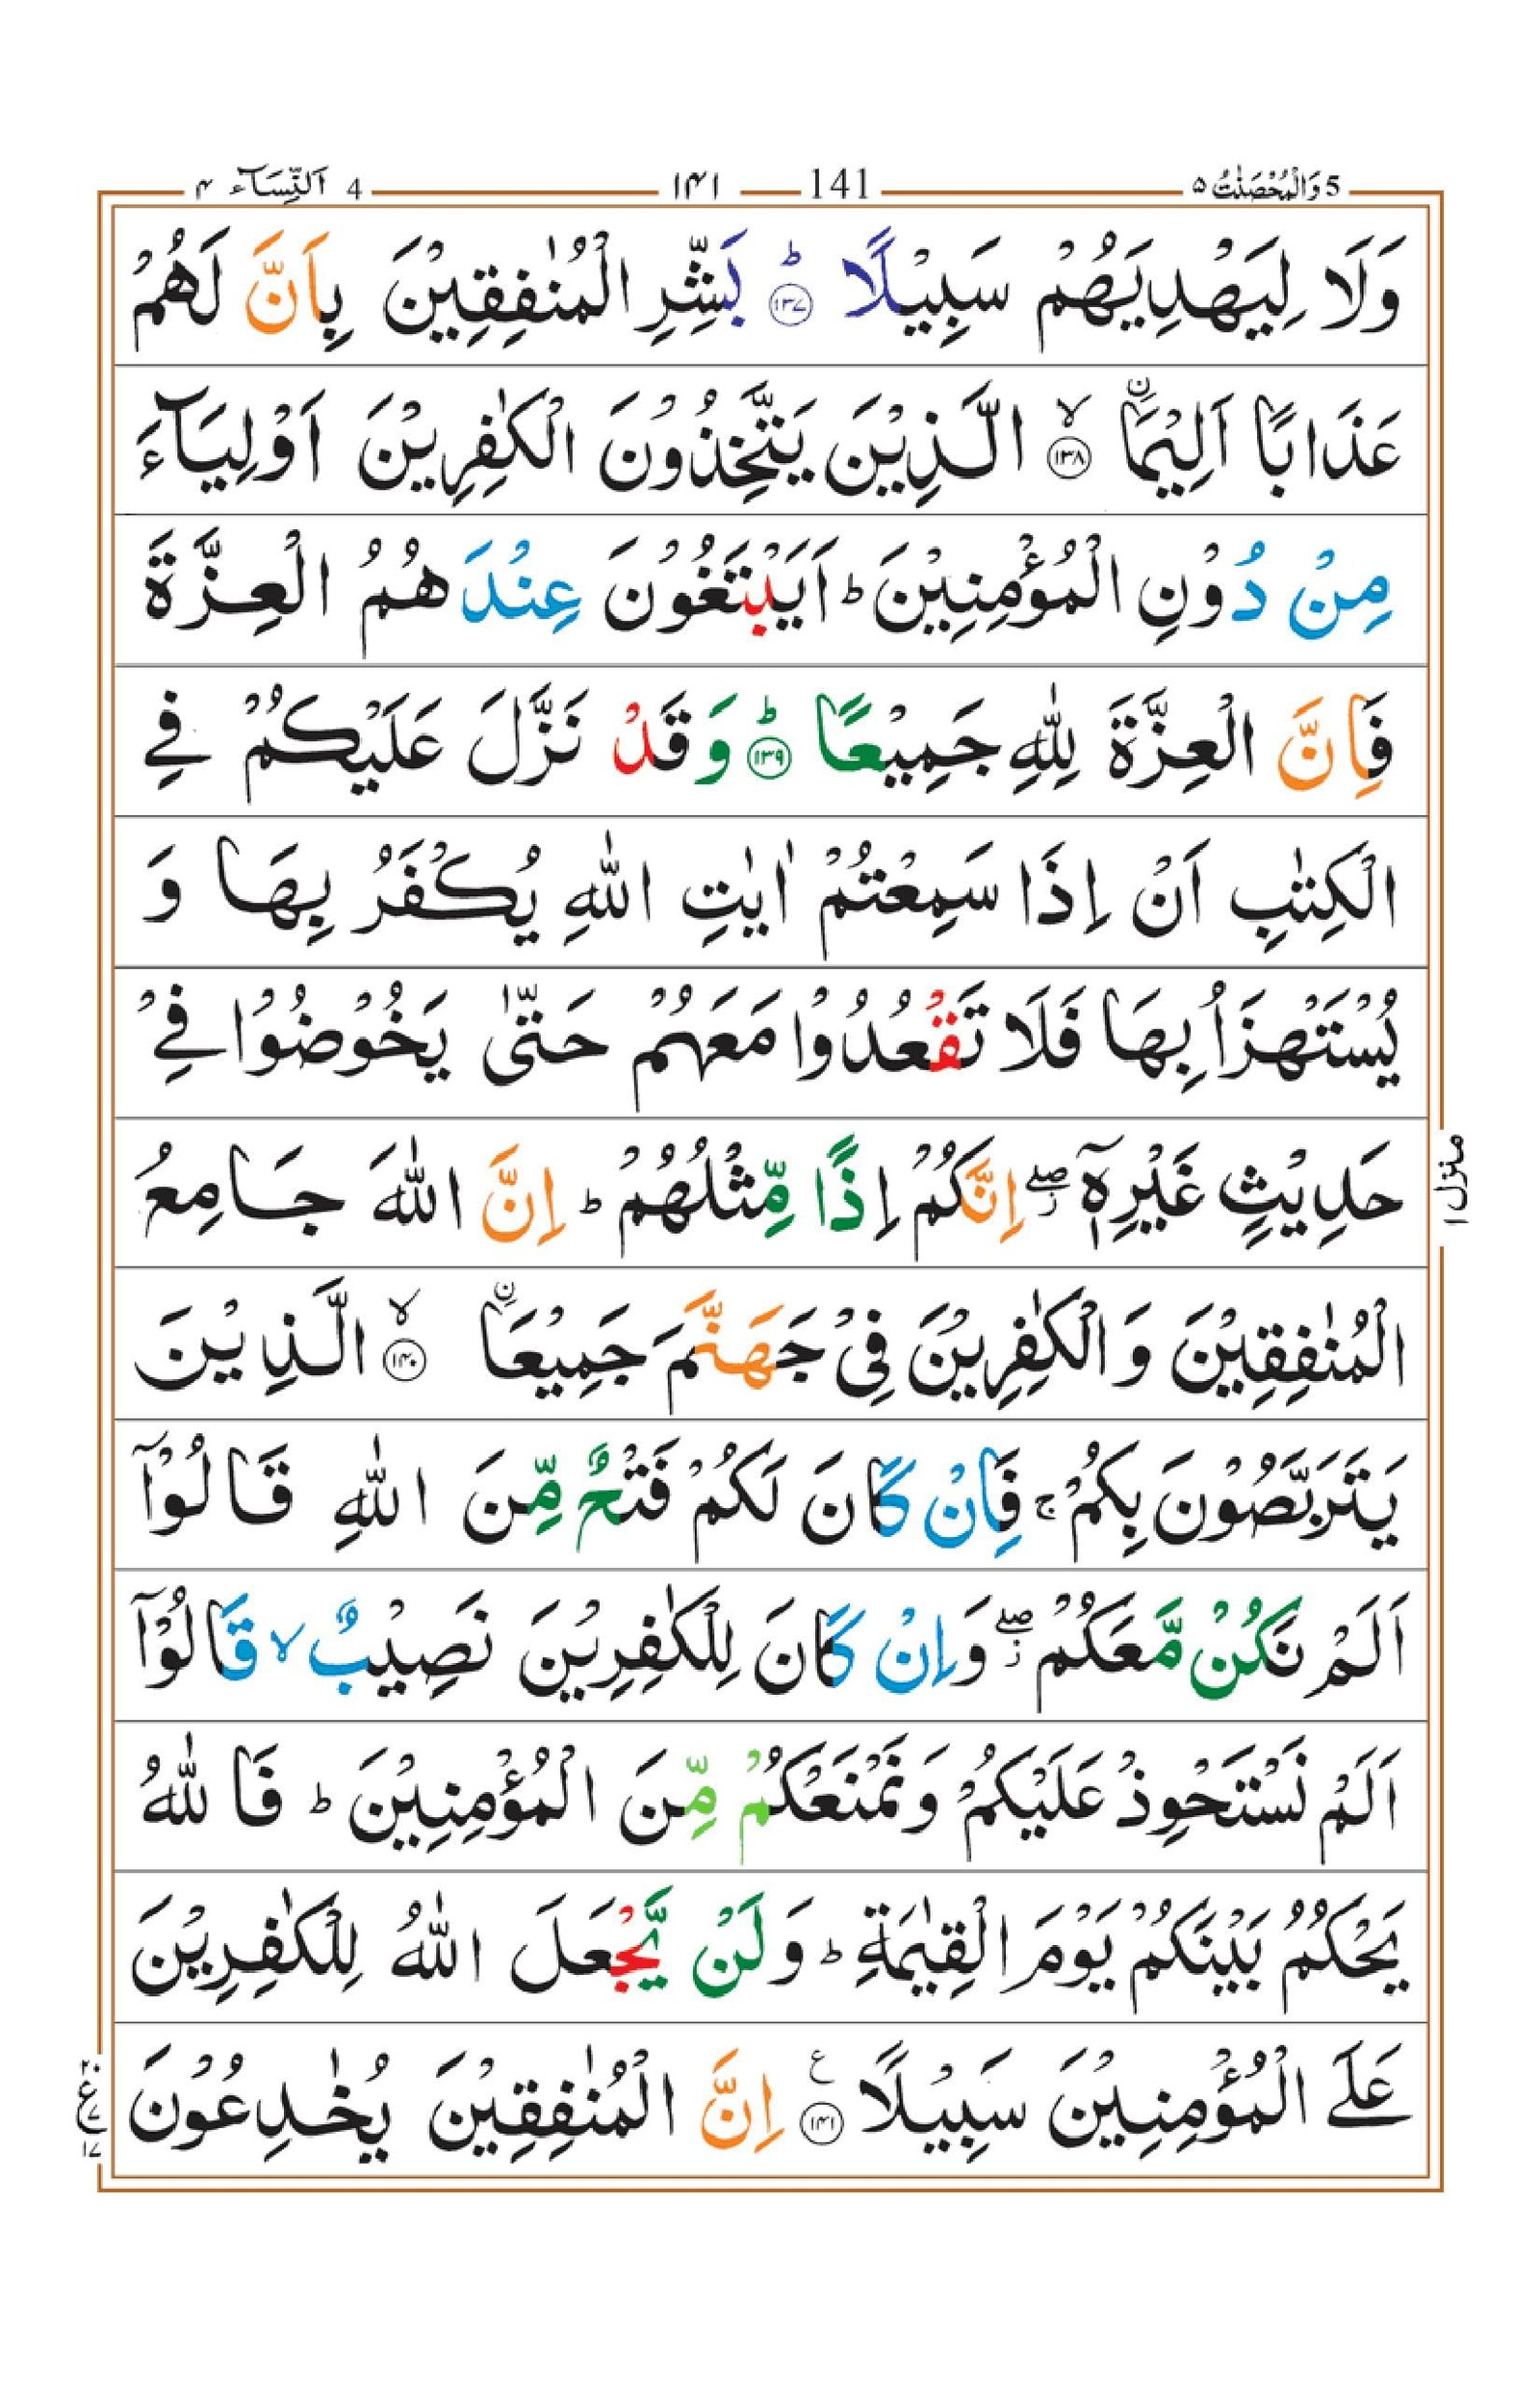 5 وَالْمُحْصَنٰتُ ۵ 141 ۱۴۱ 4 اَلنِّسَآء ۴
وَلَا لِيَهْدِيَهُمْ سَبِيْلًا ؕ‏﴿۱۳۷﴾ بَشِّرِ الْمُنٰفِقِيْنَ بِاَنَّ لَهُمْ
عَذَابًا اَلِيْمَاۙ۟ ﴿۱۳۸﴾ الَّذِيْنَ يَتَّخِذُوْنَ الْكٰفِرِيْنَ اَوْلِيَآءَ
مِنْ دُوْنِ الْمُؤْمِنِيْنَ ؕ اَيَبْتَغُوْنَ عِنْدَهُمُ الْعِزَّةَ
فَاِنَّ الْعِزَّةَ لِلّٰهِ جَمِيْعًا ؕ ﴿۱۳۹﴾ وَقَدْ نَزَّلَ عَلَيْكُمْ فِے
الْكِتٰبِ اَنْ اِذَا سَمِعْتُمْ اٰيٰتِ اللّٰهِ يُكْفَرُ بِهَا وَ
يُسْتَهْزَاُ بِهَا فَلَا تَقْعُدُوْا مَعَهُمْ حَتّٰى يَخُوْضُوْا فِےْ
حَدِيْثٍ غَيْرِهٖۤ ۖز اِنَّكُمْ اِذًا مِّثْلُهُمْ ؕ اِنَّ اللّٰهَ جَامِعُ
الْمُنٰفِقِيْنَ وَالْكٰفِرِيْنَ فِىْ جَهَنَّمَ جَمِيْعَاۙ۟ ﴿۱۴۰﴾ الَّذِيْنَ
يَتَرَبَّصُوْنَ بِكُمْ ۚ فَاِنْ كَانَ لَكُمْ فَتْحٌ مِّنَ اللّٰهِ قَالُوْۤا
اَلَمْ نَكُنْ مَّعَكُمْ ۖز وَاِنْ كَانَ لِلْكٰفِرِيْنَ نَصِيْبٌ ۙ قَالُوْۤا
اَلَمْ نَسْتَحْوِذْ عَلَيْكُمْ وَنَمْنَعْكُمْ مِّنَ الْمُؤْمِنِيْنَ ؕ فَاللّٰهُ
يَحْكُمُ بَيْنَكُمْ يَوْمَ الْقِيٰمَةِ ؕ وَلَنْ يَّجْعَلَ اللّٰهُ لِلْكٰفِرِيْنَ
عَلَے الْمُؤْمِنِيْنَ سَبِيْلًا ع ﴿۱۴۱﴾ اِنَّ الْمُنٰفِقِيْنَ يُخٰدِعُوْنَ
منزل ۱
۲۰
ع ۷
۱۷